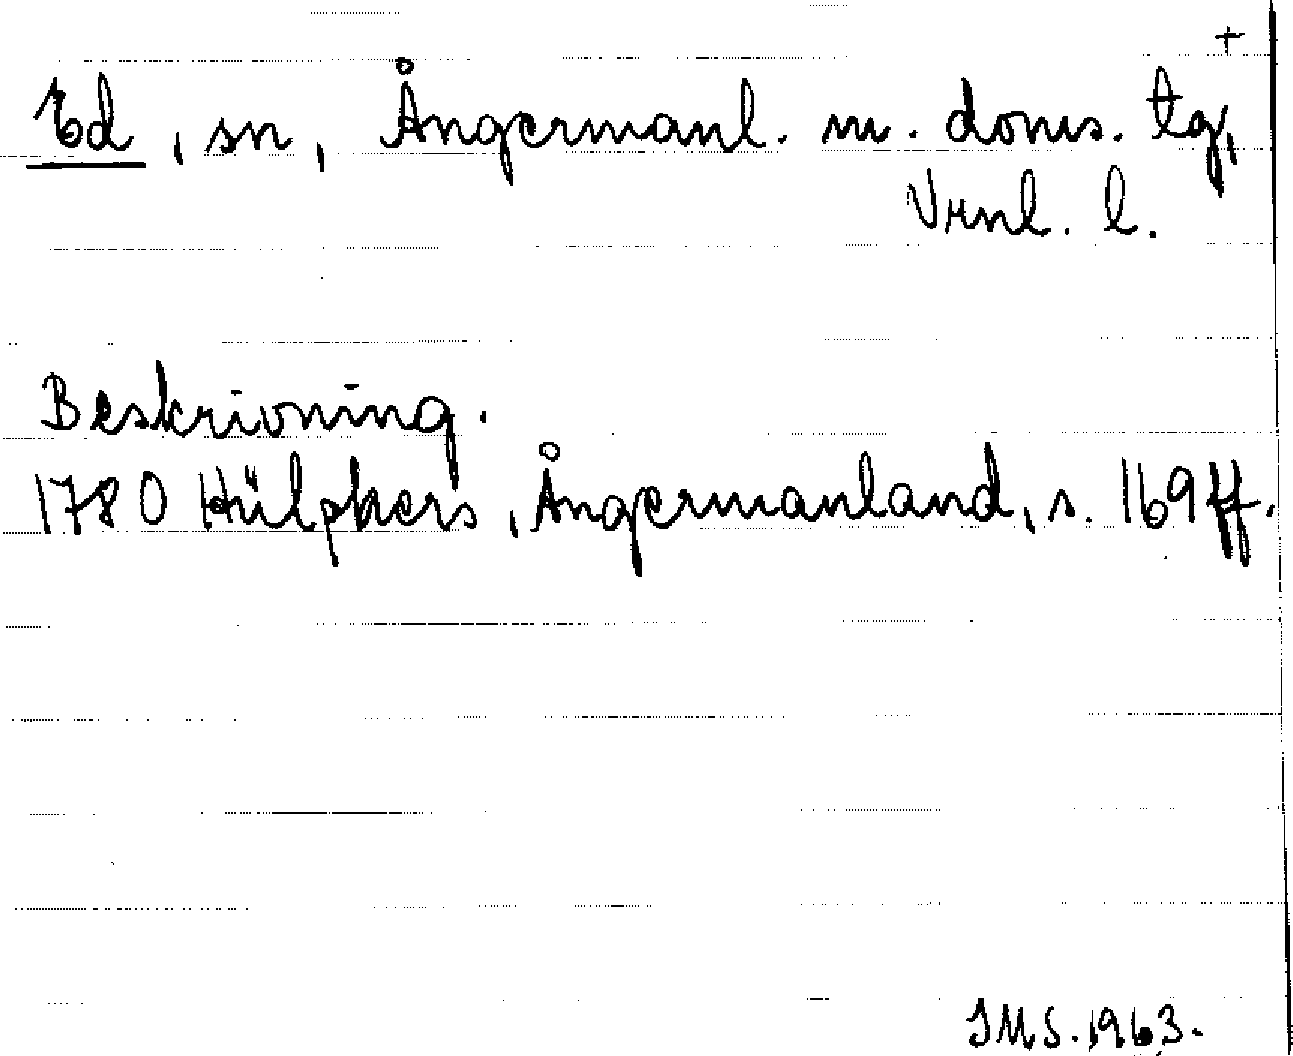 +
Ed, sn, Ångermanl. m. doms. tg,
Vrnl. l.
Beskrivning.
1780 Hülphers, Ångermanland, s. 169 ff.
JMS. 1963.